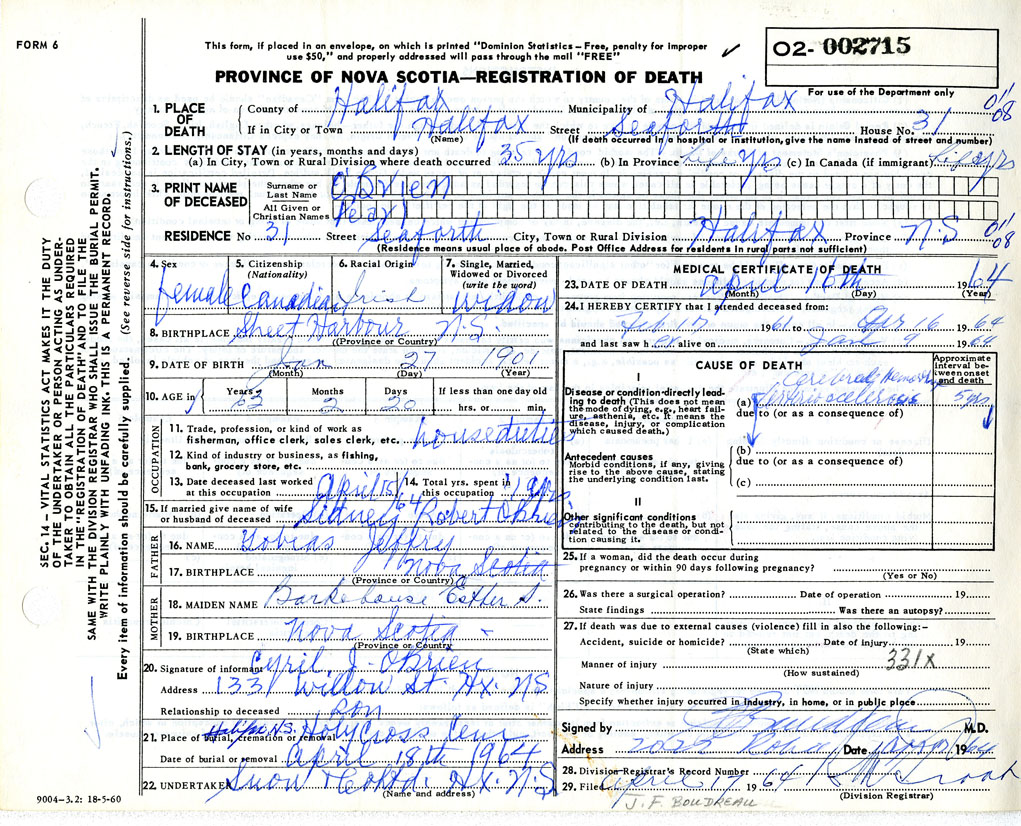 FORM 6
This form, if placed in an envelope, on which is printed "Dominion Statistics – Free, penalty for improper
use $50," and properly addressed will pass through the mail "FREE"
O2- 002715
For use of the Department only
PROVINCE OF NOVA SCOTIA—REGISTRATION OF DEATH
SEC. 14 – VITAL STATISTICS ACT MAKES IT THE DUTY
OF THE UNDERTAKER OR PERSON ACTING AS UNDER-
TAKER TO OBTAIN ALL THE PARTICULARS REQUIRED
IN THE "REGISTRATION OF DEATH" AND TO FILE THE
SAME WITH THE DIVISION REGISTRAR WHO SHALL ISSUE THE BURIAL PERMIT.
WRITE PLAINLY WITH UNFADING INK. THIS IS A PERMANENT RECORD.
Every item of information should be carefully supplied. (See reverse side for instructions.)
1. PLACE OF DEATH County of Halifax Municipality of Halifax 01/08
If in City or Town Halifax Street Seaforth House No. 31
(Name) (If death occurred in a hospital or institution, give the name instead of street and number)
2. LENGTH OF STAY (in years, months and days)
(a) In City, Town or Rural Division where death occurred 35 yrs (b) In Province Life yrs (c) In Canada (if immigrant) Life yrs
3. PRINT NAME OF DECEASED
Surname or Last Name O'Brien
All Given or Christian Names Pearl
RESIDENCE No 31 Street Seaforth City, Town or Rural Division Halifax Province N.S 01/08
(Residence means usual place of abode. Post Office Address for residents in rural parts not sufficient)
4. Sex female
5. Citizenship (Nationality) Canadian
6. Racial Origin Irish
7. Single, Married, Widowed or Divorced (write the word) widow
8. BIRTHPLACE Sheet Harbour N.S.
(Province or Country)
9. DATE OF BIRTH Jan 27 1901
(Month) (Day) (Year)
10. AGE in Years 63 Months 2 Days 20 If less than one day old
hrs. or min.
OCCUPATION
11. Trade, profession, or kind of work as
fisherman, office clerk, sales clerk, etc. houseduties
12. Kind of industry or business, as fishing,
bank, grocery store, etc.
13. Date deceased last worked at this occupation April 15/64
14. Total yrs. spent in this occupation yrs
15. If married give name of wife
or husband of deceased Sidney Robert OBrien
FATHER
16. NAME Tobias Jeffry
17. BIRTHPLACE Nova Scotia
(Province or Country)
MOTHER
18. MAIDEN NAME Barkehouse Esther S.
19. BIRTHPLACE Nova Scotia
(Province or Country)
20. Signature of informant Cyril J. OBrien
Address 1331 Willow St. Hx. N.S
Relationship to deceased son
21. Place of burial, cremation or removal Halifax N.S. Holy Cross Cem
Date of burial or removal April 18th 1964
22. UNDERTAKER Snow & Co Ltd. Hx. N.S
(Name and address)
9004–3.2: 18-5-60
MEDICAL CERTIFICATE OF DEATH
23. DATE OF DEATH April 16th 1964
(Month) (Day) (Year)
24. I HEREBY CERTIFY that I attended deceased from:
Feb 17 1961 to Apr 16 1964
and last saw her alive on Jan 9 1964
CAUSE OF DEATH
Approximate interval between onset and death
I
Disease or condition directly leading to death (This does not mean the mode of dying, e.g., heart failure, asthenia, etc. It means the disease, injury, or complication which caused death.)
Cerebral Hemorrhage
(a) Arteriosclerosis 5 yrs
due to (or as a consequence of)
Antecedent causes
Morbid conditions, if any, giving rise to the above cause, stating the underlying condition last.
(b)
due to (or as a consequence of)
(c)
II
Other significant conditions
contributing to the death, but not related to the disease or condition causing it.
25. If a woman, did the death occur during
pregnancy or within 90 days following pregnancy?
(Yes or No)
26. Was there a surgical operation? Date of operation 19
State findings Was there an autopsy?
27. If death was due to external causes (violence) fill in also the following:-
Accident, suicide or homicide? Date of injury 19
(State which)
Manner of injury 331x
(How sustained)
Nature of injury
Specify whether injury occurred in industry, in home, or in public place
Signed by M.D.
Address 2025 Date 1964
28. Division Registrar's Record Number
29. Filed April 17 1964
(Division Registrar)
J. F. BOUDREAU